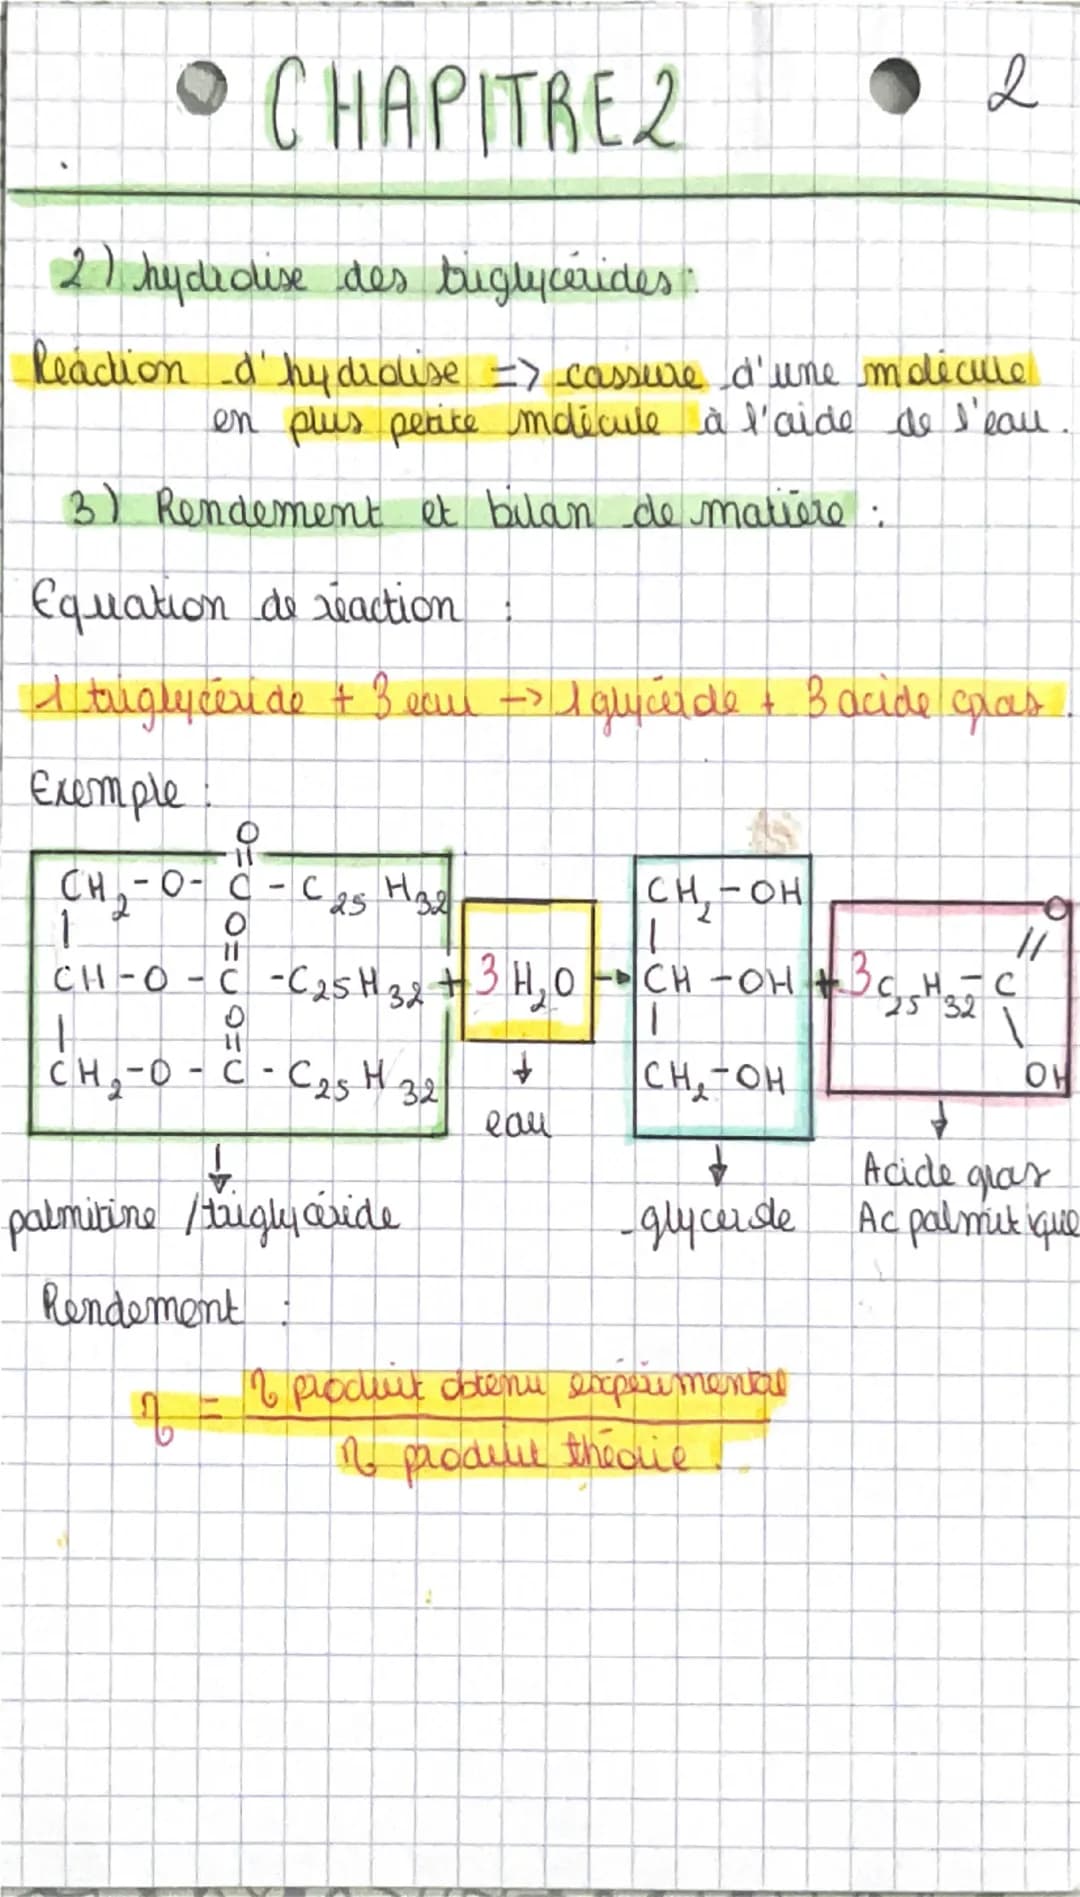 CHAPITRE 2
2
2) hydrolise des triglycérides :
Réaction d'hydrolise => cassure d'une molécule
en plus petite molécule à l'aide de l'eau.
3) Rendement et bilan de matière :
Equation de réaction :
1 triglycéride + 3 eau -> 1 glycérole + 3 acide gras.
Exemple :
O
||
CH₂-O-C-C₂₅H₃₂
| O
||
CH-O-C-C₂₅H₃₂ + 3 H₂O → CH-OH + 3 C₂₅H₃₂-C
| O
||
CH₂-O-C-C₂₅H₃₂
CH₂-OH
|
|
CH₂-OH
O
//
\
OH
↓ eau
↓ palmitine / triglycéride
↓ glycerole
↓ Acide gras
Ac palmitique
Rendement :
η = n produit obtenu expérimental
n produit théorie.